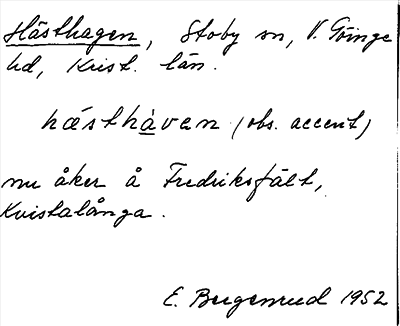 Hästhagen, Stoby sn, V. Göinge
hd, Krist. län.
hǽsthàven (obs. accent)
nu åker å Fredriksfält,
Kvistalånga.
E. Bergenrud 1952